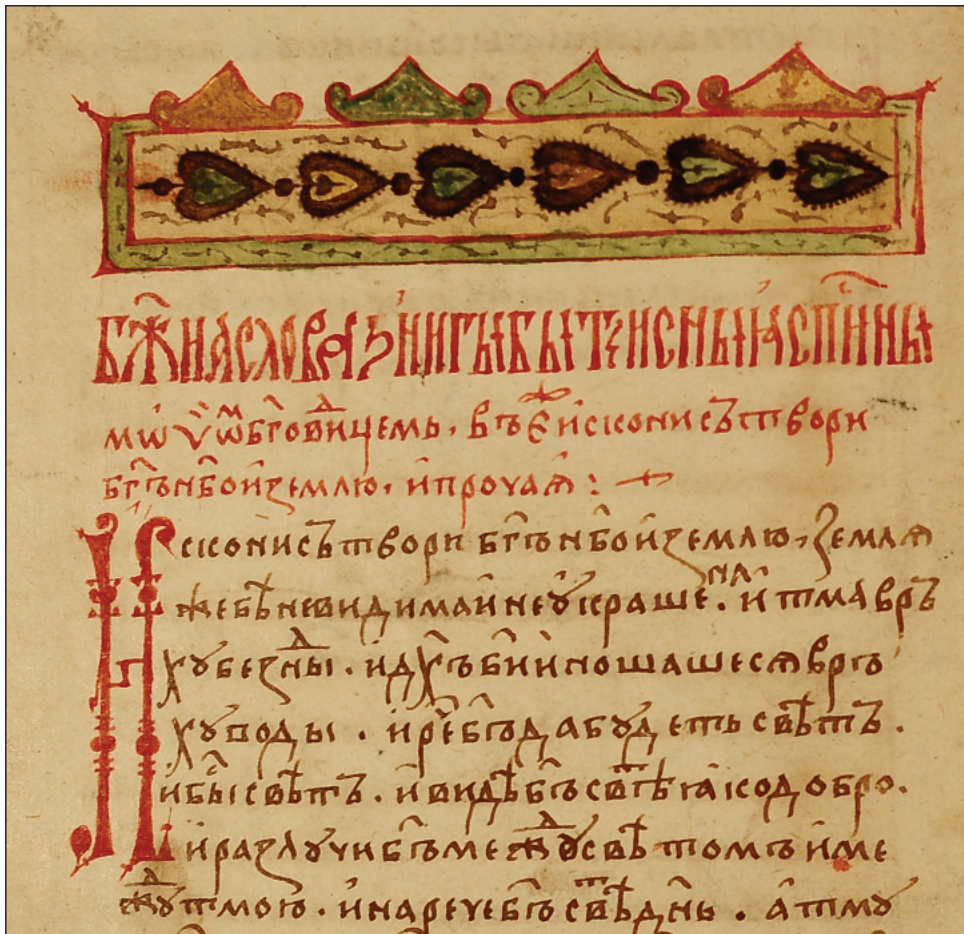 бж҃иꙗ слов̾ са книгы бытеискыѧ списаны
мѡѷсѡⷨ бг҃ови́ⷣцемь. въ҃ искони сътвори
бг҃ъ нб҃о и҆ землю. и҆прочаꙗ҆:
Искони сътвори бг҃ъ нб҃о и҆ землю, землѧ
же бѣ невидима и҆ не оу҆краше.на и҆ тма връ
хꙋ безⷣны. и дх҃ъ бж҃іи ношашесѧ връ
хꙋ воды. и҆ рⷱ҇е бг҃ъ да бꙋдеть свѣтъ.
и҆ бы́ свѣтъ. и҆ видѣ бг҃ъ свⷮѣ ꙗ҆ко добро.
и҆ разлꙋчи бг҃ъ межⷣꙋ свѣтомъ и҆ ме
жⷣꙋ тмою. и҆ нарече бг҃ъ свⷮѣ дн҃ь. а҆ тмꙋ